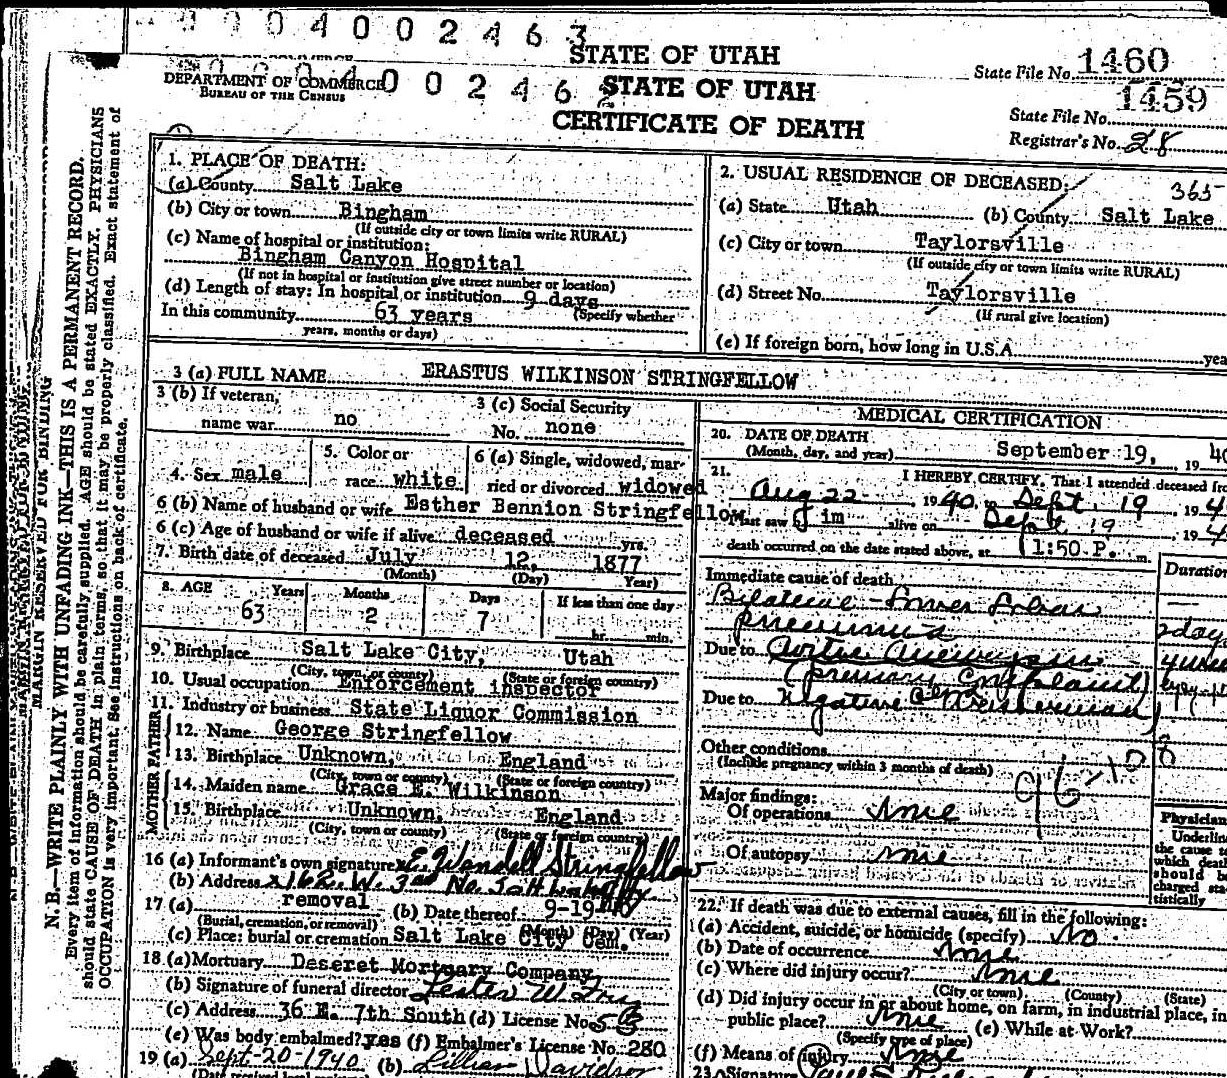 0004002463
STATE OF UTAH
State File No. 1460
DEPARTMENT OF COMMERCE
BUREAU OF THE CENSUS
0004002462
STATE OF UTAH
1459
State File No.
CERTIFICATE OF DEATH
Registrar's No. 28
N. B.—WRITE PLAINLY WITH UNFADING INK—THIS IS A PERMANENT RECORD.
Every item of information should be carefully supplied. AGE should be stated EXACTLY. PHYSICIANS
should state CAUSE OF DEATH in plain terms, so that it may be properly classified. Exact statement of
OCCUPATION is very important. See instructions on back of certificate.
MARGIN RESERVED FOR BINDING
1. PLACE OF DEATH:
(a) County Salt Lake
(b) City or town Bingham
(If outside city or town limits write RURAL)
(c) Name of hospital or institution:
Bingham Canyon Hospital
(If not in hospital or institution give street number or location)
(d) Length of stay: In hospital or institution 9 days
In this community 63 years (Specify whether
years, months or days)
2. USUAL RESIDENCE OF DECEASED: 365
(a) State Utah (b) County Salt Lake
(c) City or town Taylorsville
(If outside city or town limits write RURAL)
(d) Street No. Taylorsville
(If rural give location)
(e) If foreign born, how long in U.S.A. yea
3 (a) FULL NAME ERASTUS WILKINSON STRINGFELLOW
3 (b) If veteran,
name war no
3 (c) Social Security
No. none
4. Sex male
5. Color or
race white
6 (a) Single, widowed, mar-
ried or divorced widowed
6 (b) Name of husband or wife Esther Bennion Stringfellow
6 (c) Age of husband or wife if alive deceased yrs.
7. Birth date of deceased July 12, 1877
(Month) (Day) Year)
8. AGE Years Months Days If less than one day
63 2 7 hr. min.
9. Birthplace Salt Lake City, Utah
(City, town, or county) (State or foreign country)
10. Usual occupation Enforcement inspector
11. Industry or business State Liquor Commission
FATHER
12. Name George Stringfellow
13. Birthplace Unknown, England
(City, town or county) (State or foreign country)
MOTHER
14. Maiden name Grace E. Wilkinson
15. Birthplace Unknown, England
(City, town or county) (State or foreign country)
16 (a) Informant's own signature x E. Wendell Stringfellow
(b) Address
17 (a) removal (b) Date thereof 9-19-40
(Burial, cremation, or removal) (Month) (Day) (Year)
(c) Place: burial or cremation Salt Lake City Cem.
18 (a) Mortuary Deseret Mortuary Company
(b) Signature of funeral director
(c) Address 36 E. 7th South (d) License No. 53
(e) Was body embalmed? yes (f) Embalmer's License No. 280
19 (a) Sept-20-1940 (b) Lillian Davidson
MEDICAL CERTIFICATION
20. DATE OF DEATH
(Month, day, and year) September 19, 19 40
21. I HEREBY CERTIFY, That I attended deceased fro
Aug 22 1940 Sept. 19 19 4
last saw him alive on Sept 19 19 4
death occurred on the date stated above, at 11:50 P. m.
Immediate cause of death Duration
Bilateral - Lower Lobar
pneumonia 2 day
Due to Aortic Aneurysm
(primary complaint)
Due to Negative Wasserman)
Other conditions
(Include pregnancy within 3 months of death)
96-10 8
Major findings:
Of operations none
Of autopsy none
Physician
Underlin
the cause to
which deat
should be
charged sta-
tistically
22. If death was due to external causes, fill in the following:
(a) Accident, suicide, or homicide (specify) No
(b) Date of occurrence none
(c) Where did injury occur? none
(City or town) (County) (State)
(d) Did injury occur in or about home, on farm, in industrial place, in
public place? none (e) While at Work?
(Specify type of place)
(f) Means of injury none
23. Signature